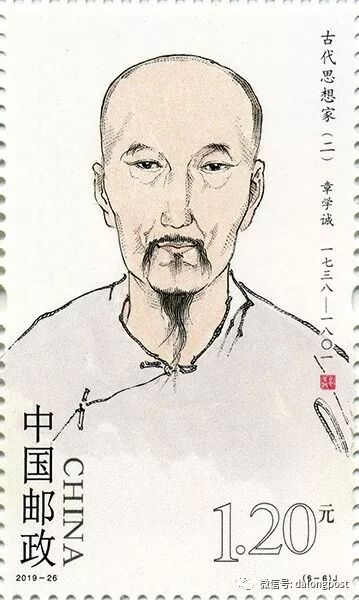 古代思想家（二） 章学诚 一七三八——一八〇一
中国邮政
CHINA
1.20元
2019-26
(6-6)J
微信号: dalongpost